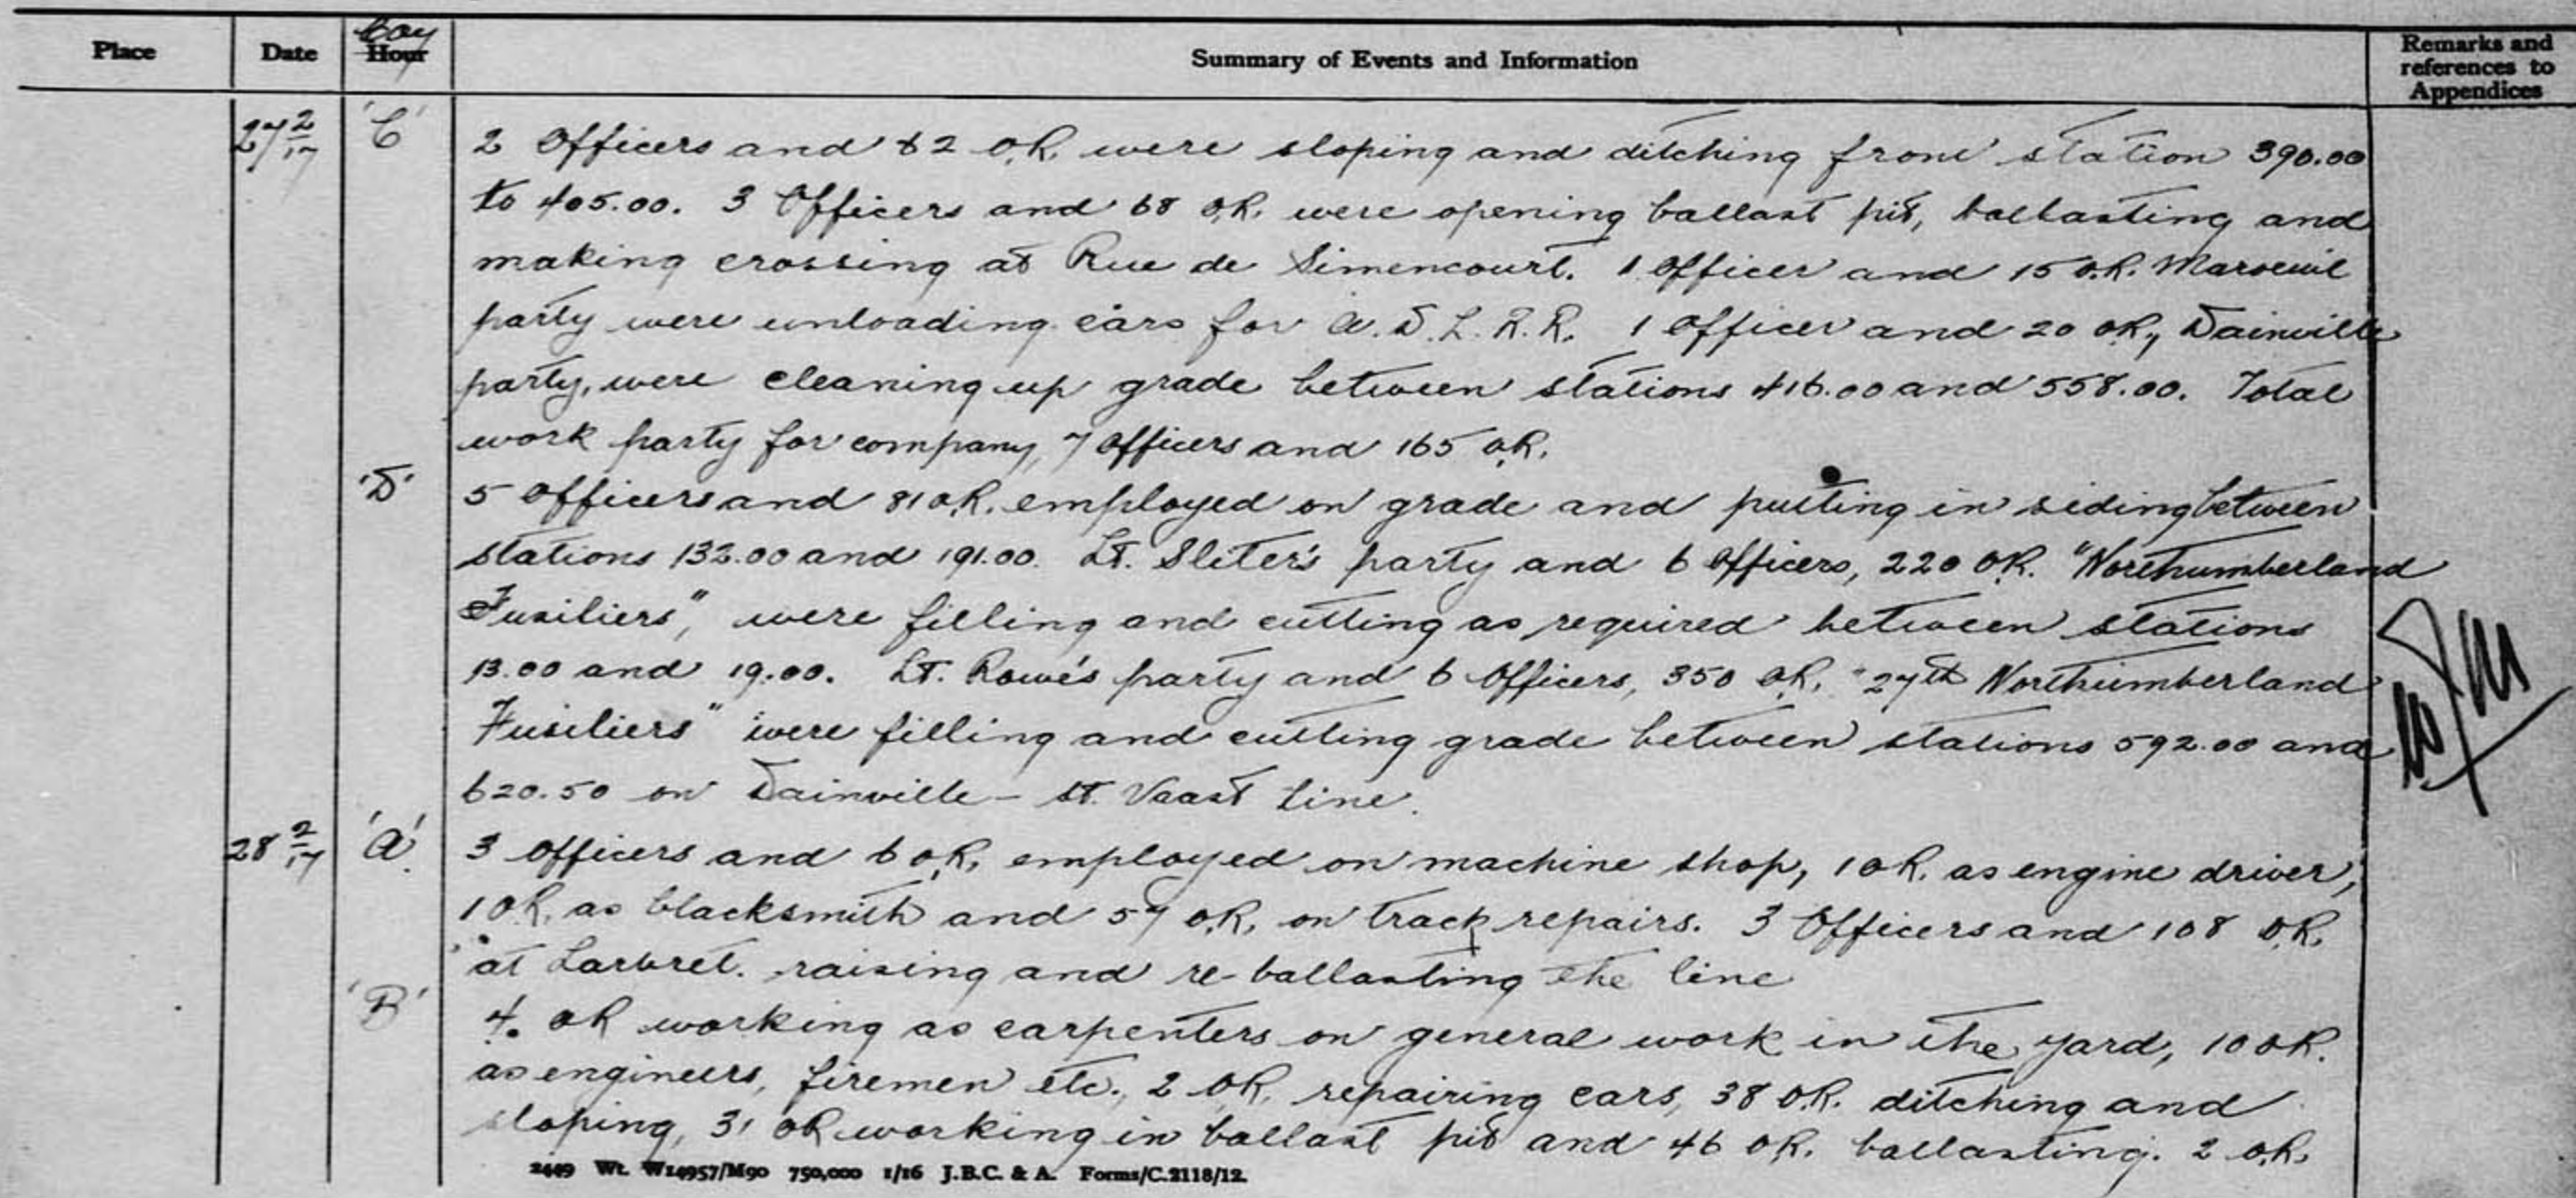 Place Date Hour Coy Summary of Events and Information Remarks and references to Appendices
27 2/17 'C' 2 Officers and 62 O.R. were sloping and ditching from station 390.00
to 405.00. 3 Officers and 68 O.R. were opening ballast pit, ballasting and
making crossing at Rue de Simencourt. 1 Officer and 15 O.R. Maroeuil
party were unloading cars for A.D.L.R.R. 1 Officer and 20 O.R., Dainville
party, were cleaning up grade between stations 416.00 and 558.00. Total
work party for company, 7 Officers and 165 O.R.
'D' 5 Officers and 81 O.R. employed on grade and putting in siding between
stations 132.00 and 191.00. Lt. Sliter's party and 6 Officers, 220 O.R. "Northumberland
Fusiliers", were filling and cutting as required between stations
13.00 and 19.00. Lt. Rowe's party and 6 Officers, 350 O.R. "27th Northumberland
Fusiliers" were filling and cutting grade between stations 592.00 and
620.50 on Dainville - St. Vaast line.
28 2/17 'A' 3 Officers and 6 O.R. employed on machine shop, 1 O.R. as engine driver,
1 O.R. as blacksmith and 57 O.R. on track repairs. 3 Officers and 108 O.R.
at Larbret. raising and re-ballasting the line
'B' 4. OR working as carpenters on general work in the yard, 10 OR.
as engineers, firemen etc., 2 O.R. repairing cars, 38 O.R. ditching and
sloping, 31 OR working in ballast pit and 46 O.R. ballasting. 2 O.R.
2449 Wt. W14957/M90 750,000 1/16 J.B.C. & A. Forms/C.2118/12.